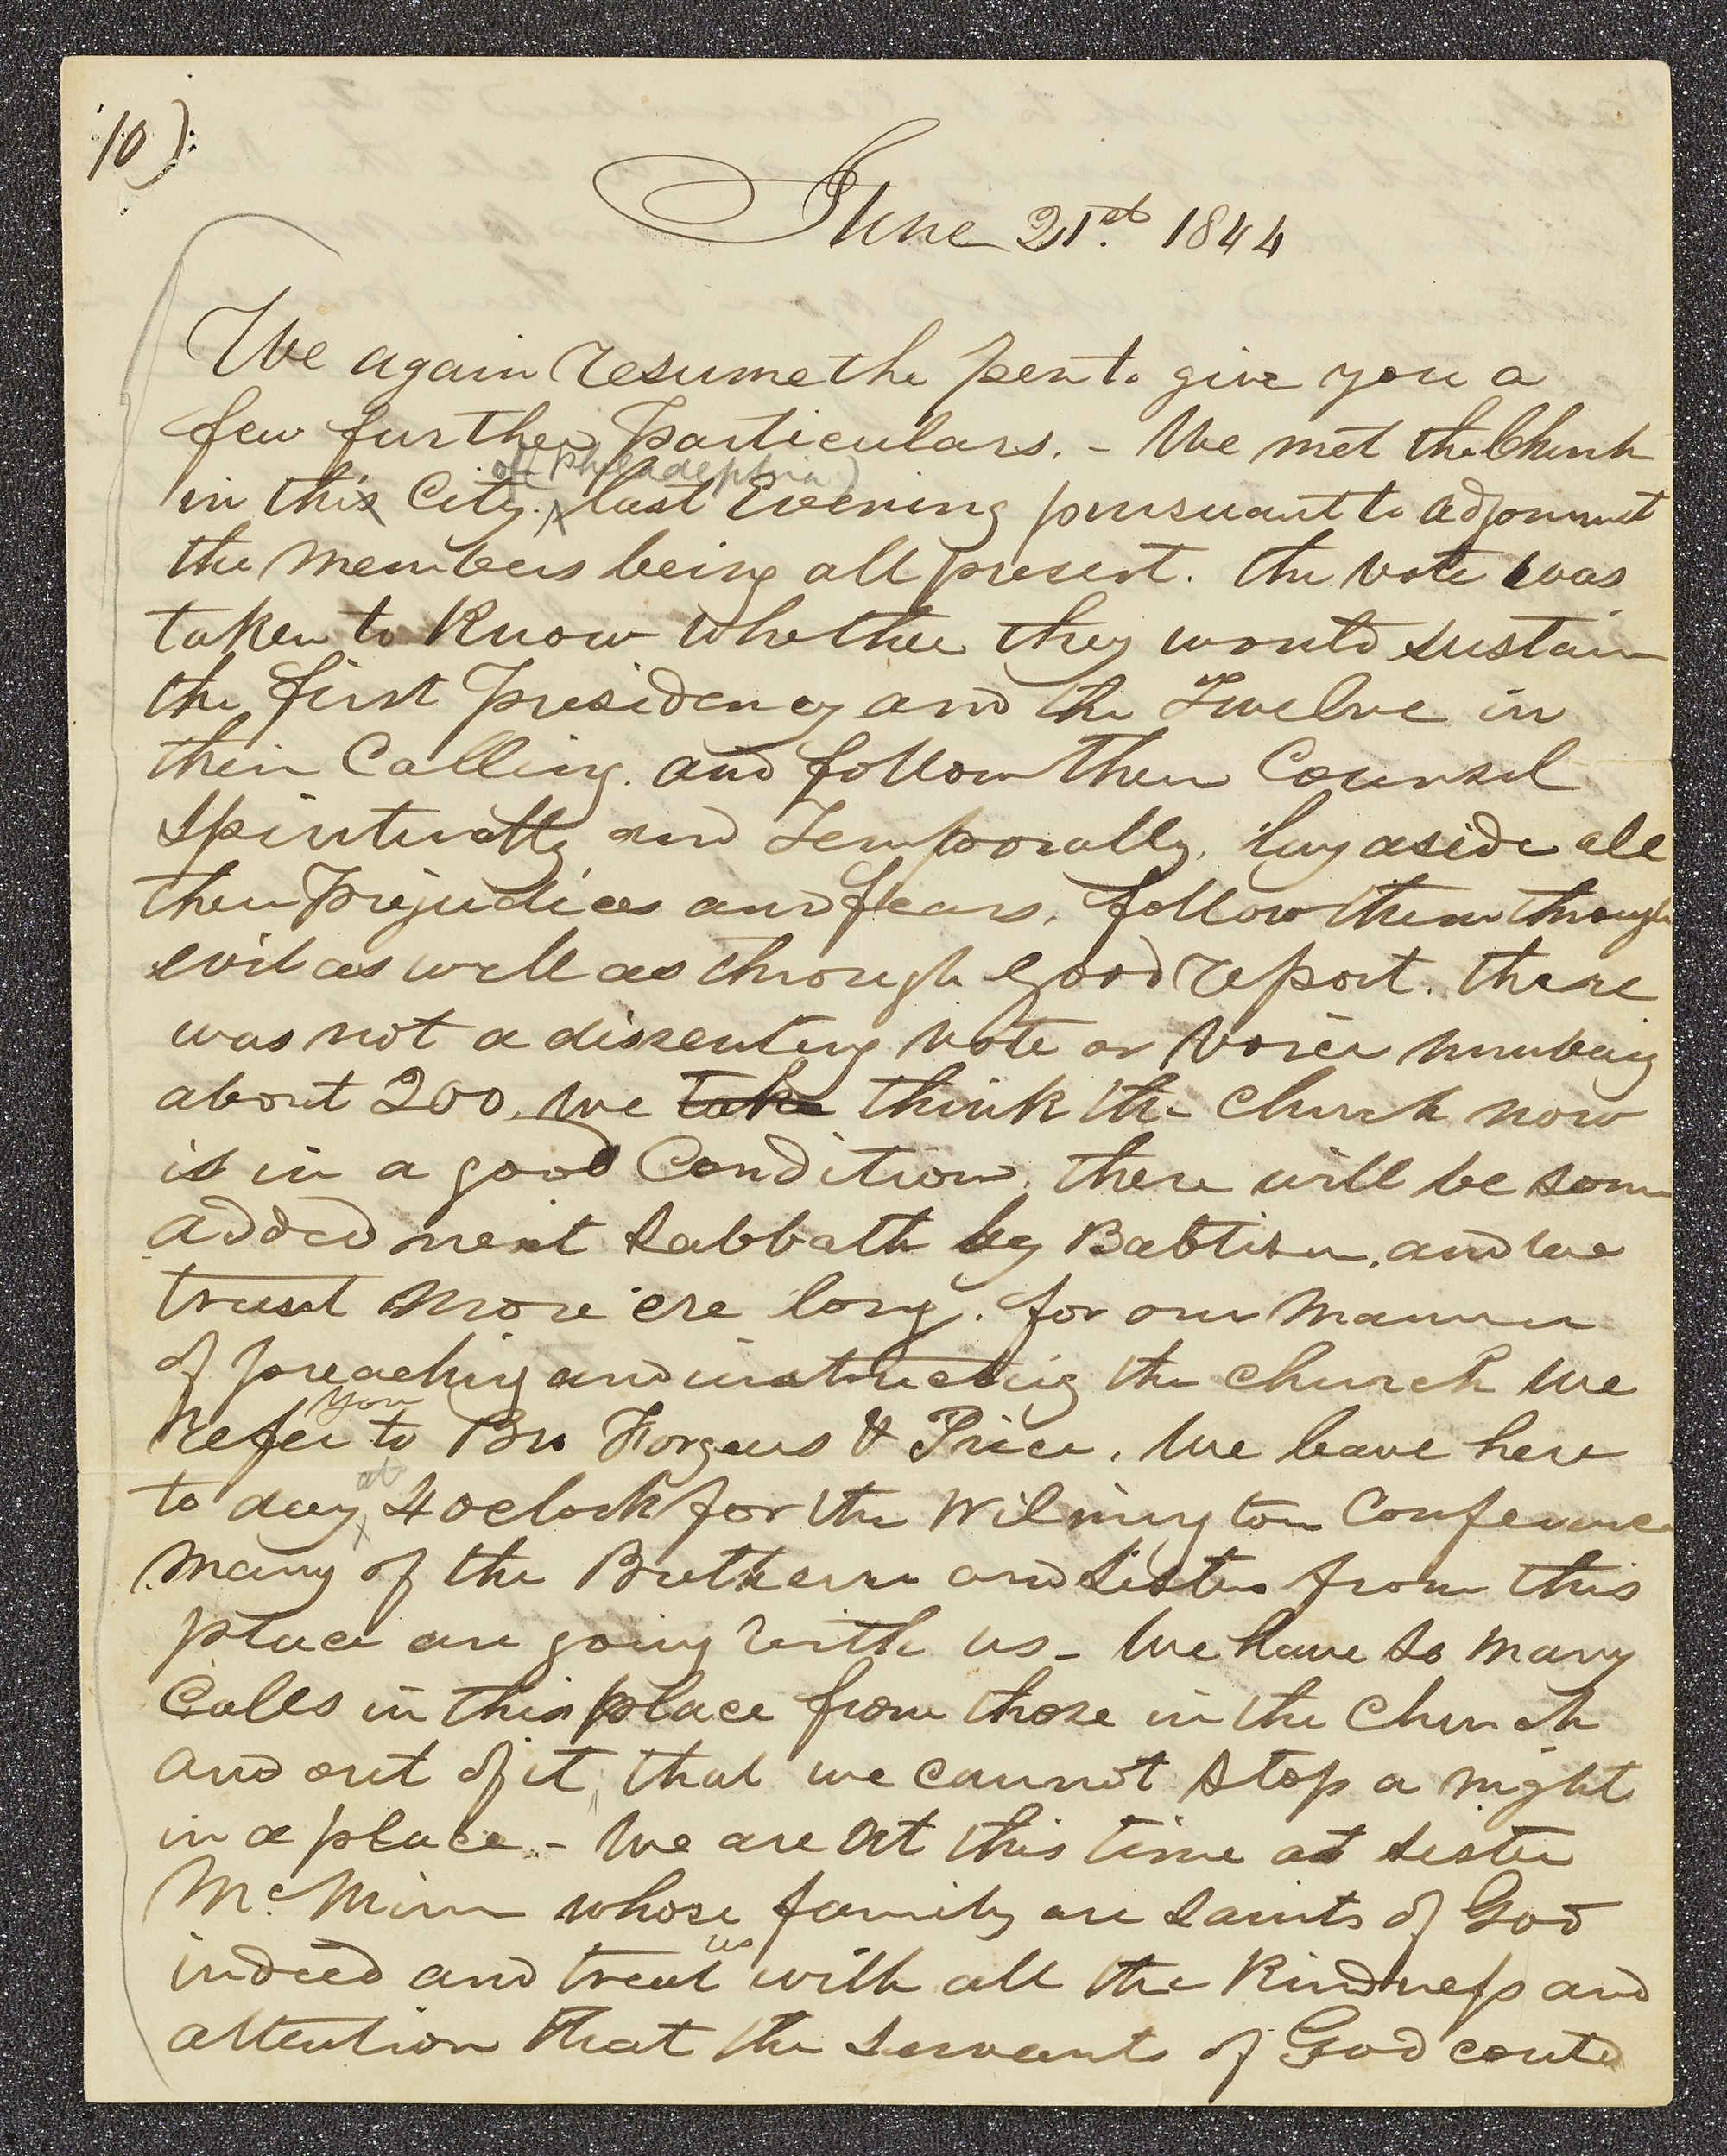 10)
June 21st. 1844
We again resume the pen to give you a
few further particulars. - We met the Church
of Philadelphia)
in this City. last Evening pursuant to adjonmnt
the members being all present. the vote was
taken to know whether they would sustain
the first presidency and the Twelve in
their Calling. and follow their Counsel
spiritually and Temporally, lay aside all
their prejudices and fears, follow them through
evil as well as through good report. there
was not a dissenting vote or voice numbering
about 200. We take think the church now
is in a good Condition, there will be some
added next Sabbath by Babtism, and we
trust more ere long. for our manner
of preaching and instructing the church we
you
refer to Bro Forgeus & Price. We leave here
at
to day 4 oclock for the Wilmington Conference
many of the Bretheren and Sisters from this
place are going with us - We have so many
Calls in this place from those in the Church
and out of it, that we cannot stop a night
in a place. - We are at this time at Sister
Mc. Minn whose family are Saints of God
us
indeed and treat with all the Kindness and
attention that the Servants of God could